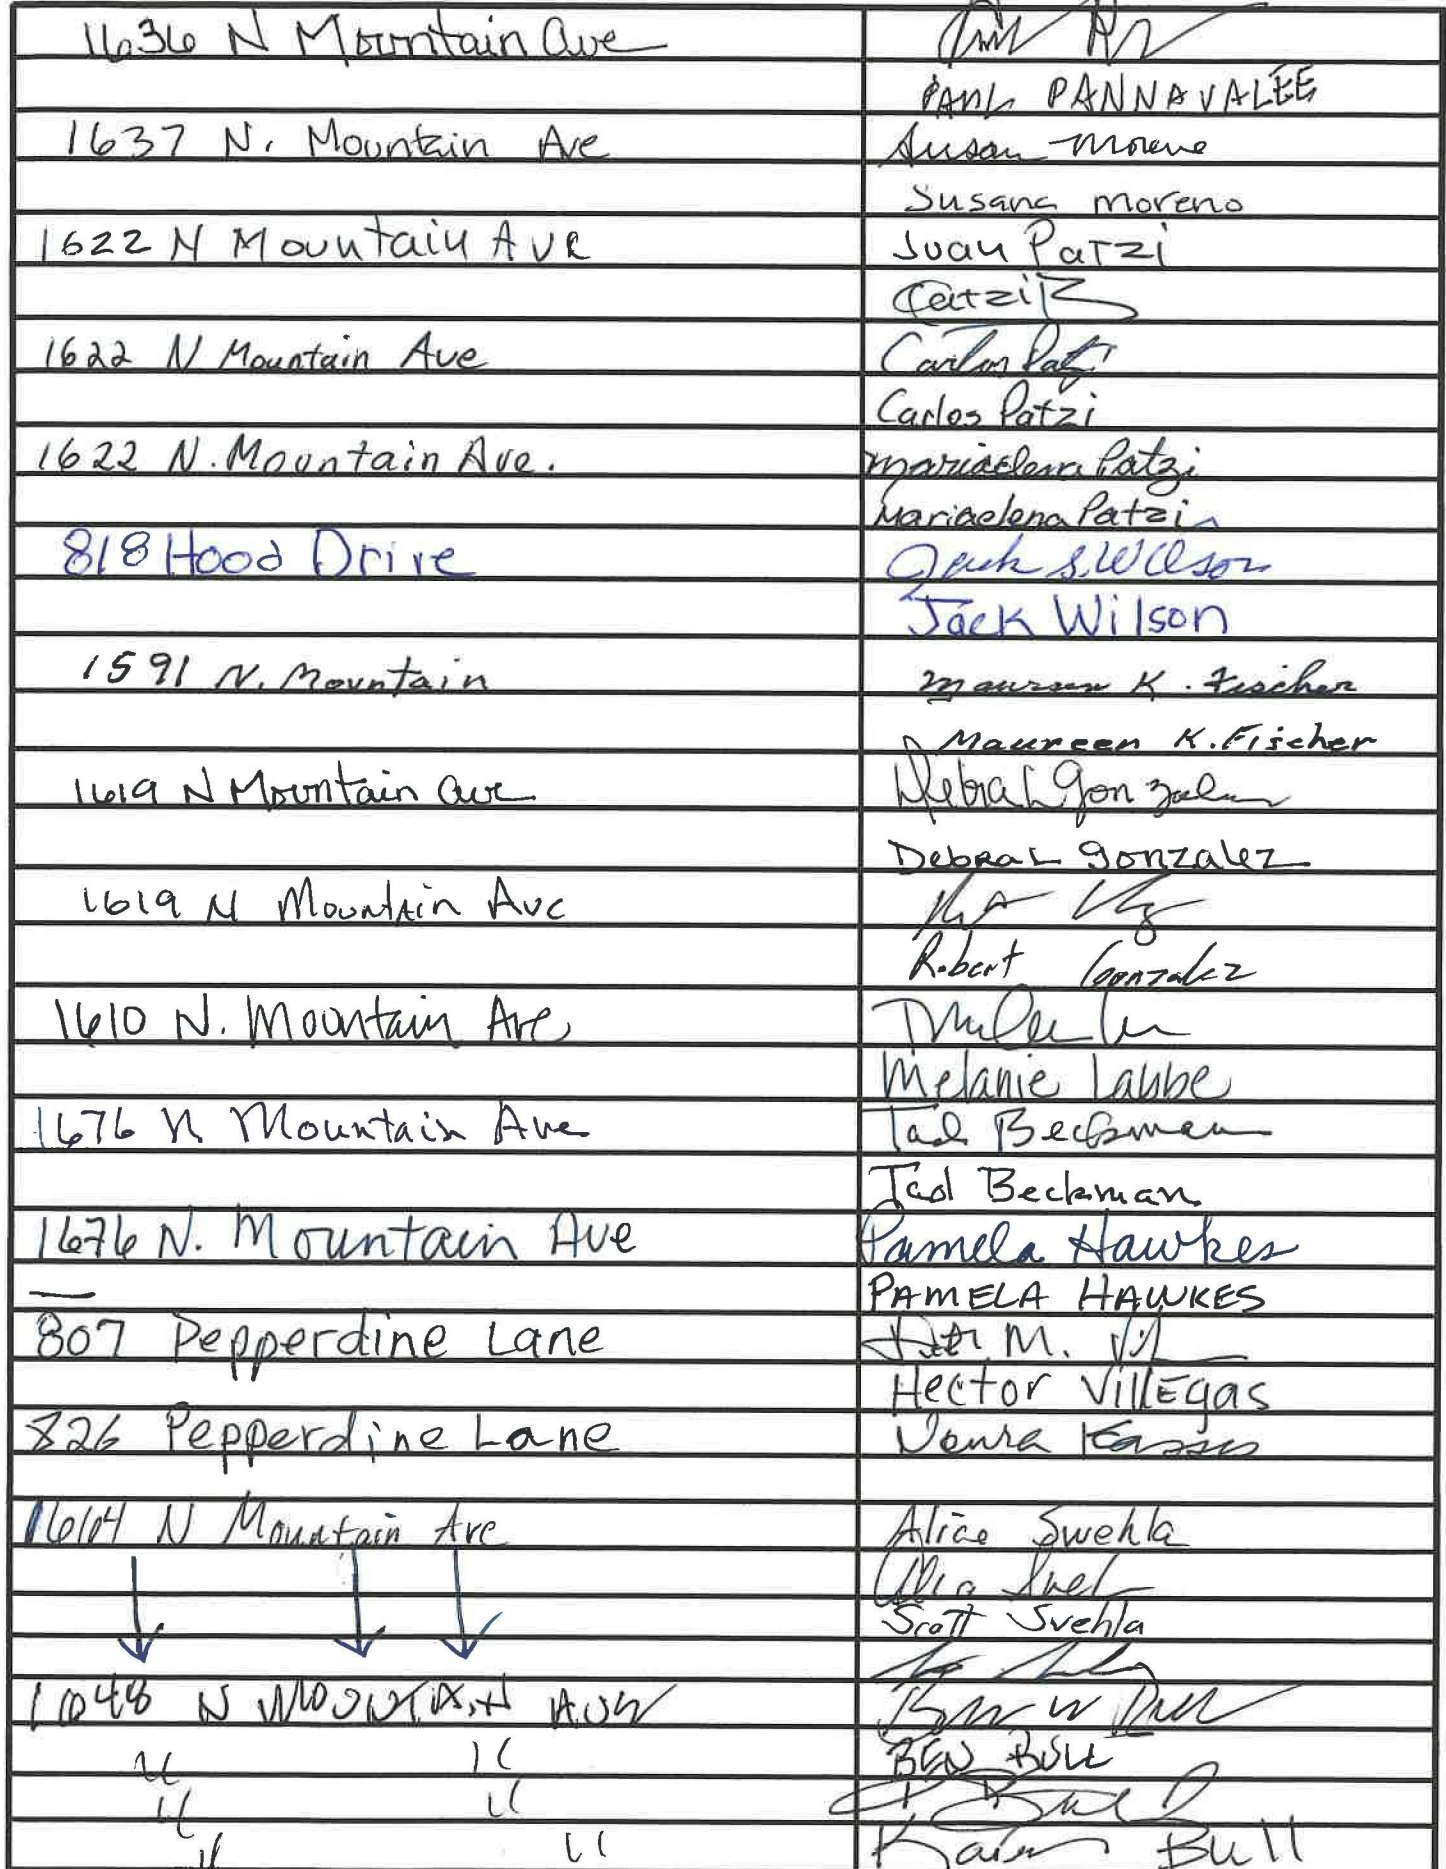 1636 N Mountain Ave
PANNAVALEE
1637 N. Mountain Ave Susana Moreno
Susana Moreno
1622 N Mountain Ave Juan Patzi
Patzi
1622 N Mountain Ave Carlos Patzi
Carlos Patzi
1622 N. Mountain Ave. Mariaelena Patzi
Mariaelena Patzi
818 Hood Drive Jack S. Wilson
Jack Wilson
1591 N. Mountain Maureen K. Fischer
Maureen K. Fischer
1619 N Mountain Ave Debra L Gonzalez
Debra L Gonzalez
1619 N Mountain Ave
Robert Gonzalez
1610 N. Mountain Ave
Melanie Laube
1676 N Mountain Ave Tad Beckman
Tad Beckman
1676 N. Mountain Ave Pamela Hawkes
PAMELA HAWKES
807 Pepperdine Lane M.
Hector Villegas
826 Pepperdine Lane
1664 N Mountain Ave Alice Svehla
Scott Svehla
1648 N MOUNTAIN AVE
" " BEN BULL
" "
" " Karen Bull